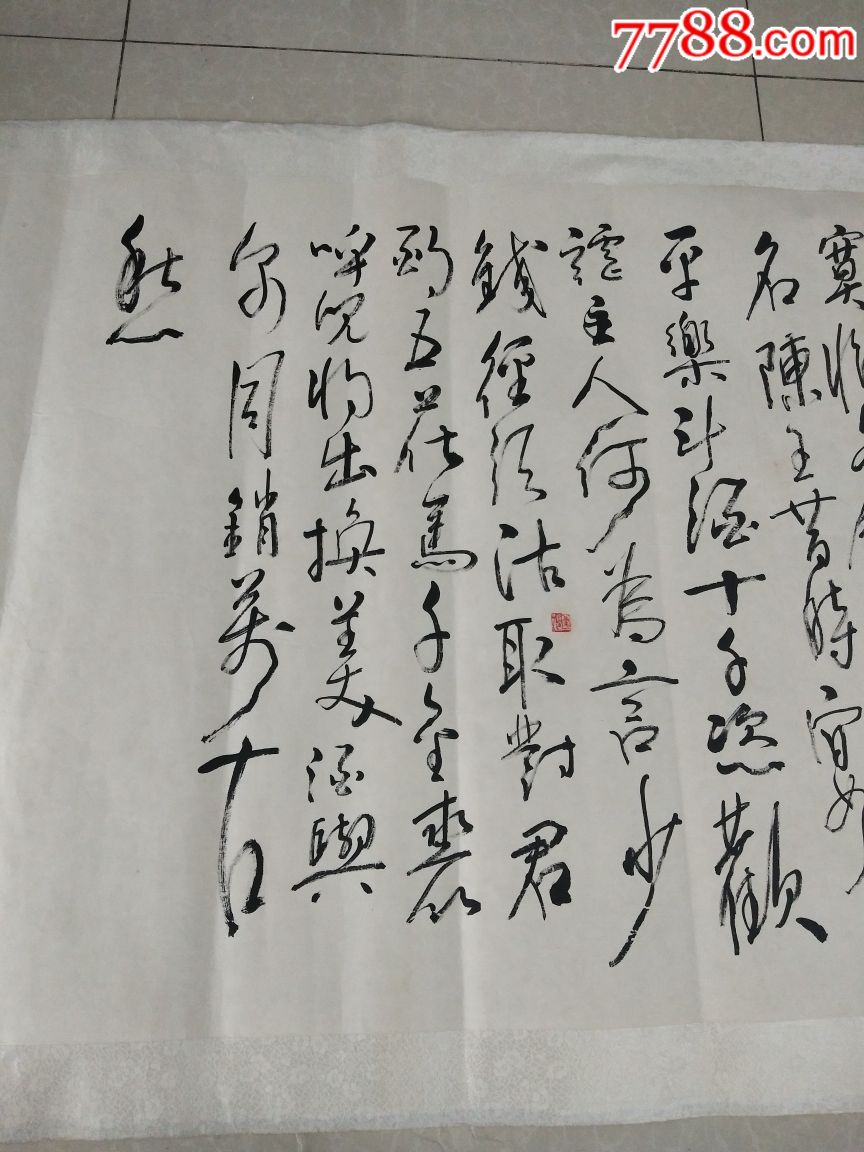 7788.com
寞惟
名陳王昔時宴
平樂斗酒十千恣歡
謔主人何為言少
錢徑須沽取對君
酌五花馬千金裘
呼兒將出換美酒與
爾同銷萬古
愁